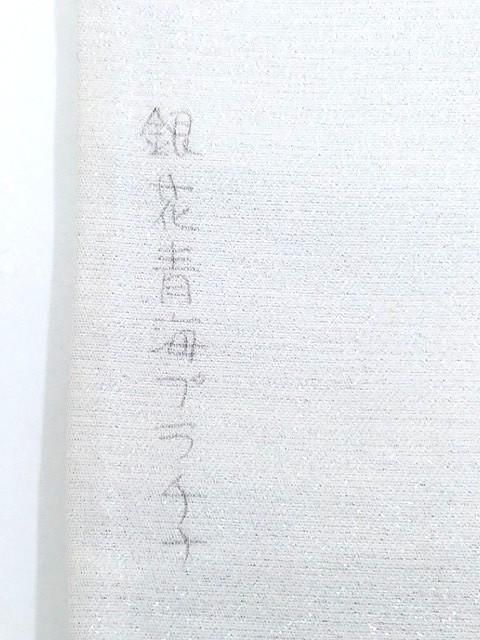 銀花青海プラチナ